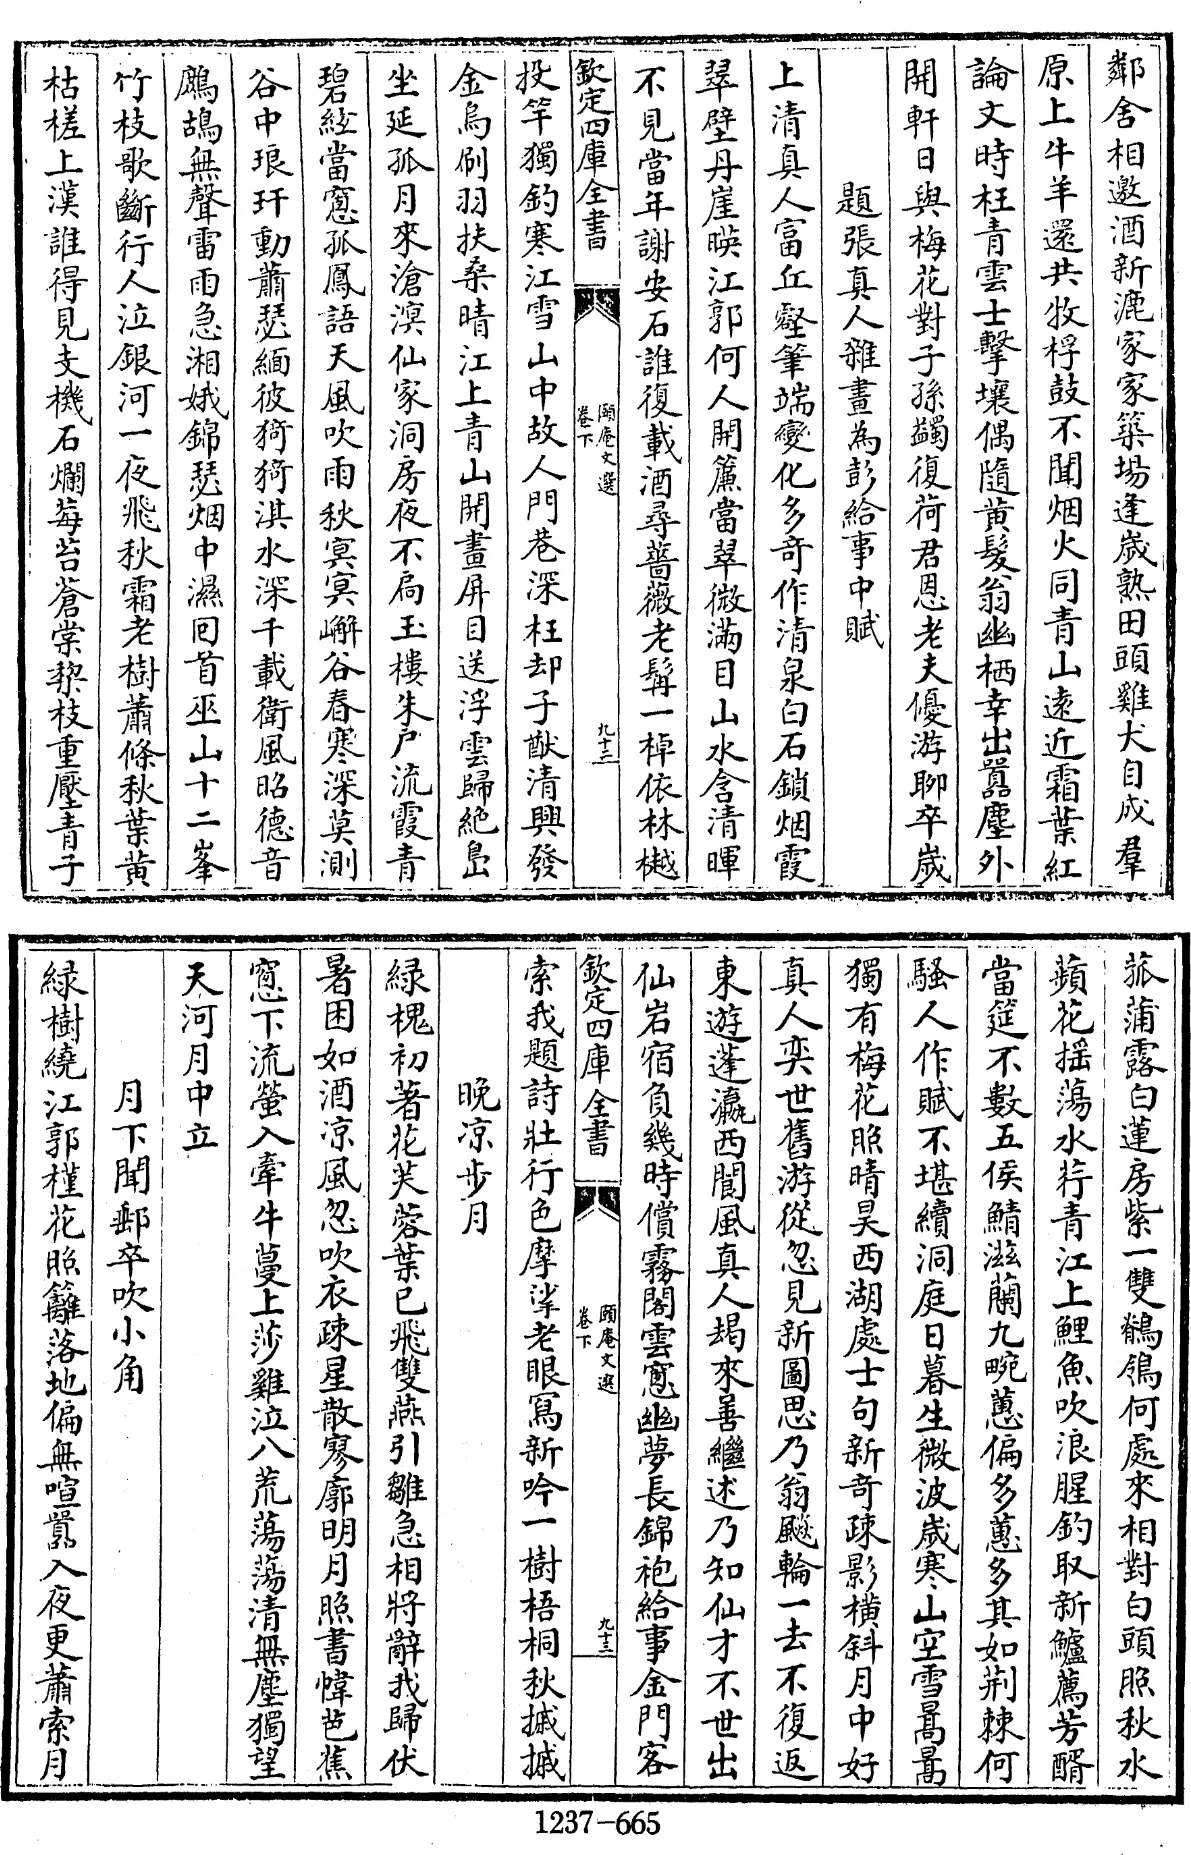 鄰舍相邀酒新漉家家築場逢歲熟田頭雞犬自成羣
原上牛羊還共牧桴鼓不聞烟火同青山遠近霜葉紅
論文時枉青雲士擊壤偶隨黃髮翁幽栖幸出囂塵外
開軒日與梅花對子孫蠲復荷君恩老夫優游聊卒歲
題張真人雜畫為彭給事中賦
上清真人富丘壑筆端變化多奇作清泉白石鎖烟霞
翠壁丹崖暎江郭何人開簾當翠微滿目山水含清暉
不見當年謝安石誰復載酒尋薔薇老髯一棹依林樾
欽定四庫全書
頤庵文選
卷下
九十二
投竿獨釣寒江雪山中故人門巷深枉却子猷清興發
金烏刷羽扶桑晴江上青山開畫屏目送浮雲歸絶島
坐延孤月來滄溟仙家洞房夜不扃玉樓朱戶流霞青
碧紗當窻孤鳳語天風吹雨秋冥冥嶰谷春寒深莫測
谷中琅玕動蕭瑟緬彼猗猗淇水深千載衛風昭德音
鷓鴣無聲雷雨急湘娥錦瑟烟中濕回首巫山十二峯
竹枝歌斷行人泣銀河一夜飛秋霜老樹蕭條秋葉黃
枯槎上漢誰得見支機石爛莓苔蒼棠棃枝重壓青子
菰蒲露白蓮房紫一雙鶺鴒何處來相對白頭照秋水
蘋花揺蕩水荇青江上鯉魚吹浪腥釣取新鱸薦芳醑
當筵不數五侯鯖滋蘭九畹蕙偏多蕙多其如荆棘何
騷人作賦不堪續洞庭日暮生微波歲寒山空雪暠暠
獨有梅花照晴昊西湖處士句新奇疎影橫斜月中好
真人奕世舊游從忽見新圖思乃翁飈輪一去不復返
東遊蓬瀛西閬風真人朅來善繼述乃知仙才不世出
仙岩宿負幾時償霧閣雲窻幽夢長錦袍給事金門客
欽定四庫全書
頤庵文選
卷下
九十三
索我題詩壯行色摩挲老眼寫新吟一樹梧桐秋摵摵
晚凉步月
緑槐初著花芙蓉葉已飛雙燕引雛急相將辭我歸伏
暑困如酒凉風忽吹衣疎星散寥廓明月照書幃芭蕉
窻下流螢入牽牛蔓上莎雞泣八荒蕩蕩清無塵獨望
天河月中立
月下聞郵卒吹小角
緑樹繞江郭槿花照籬落地偏無喧囂入夜更蕭索月
1237-665